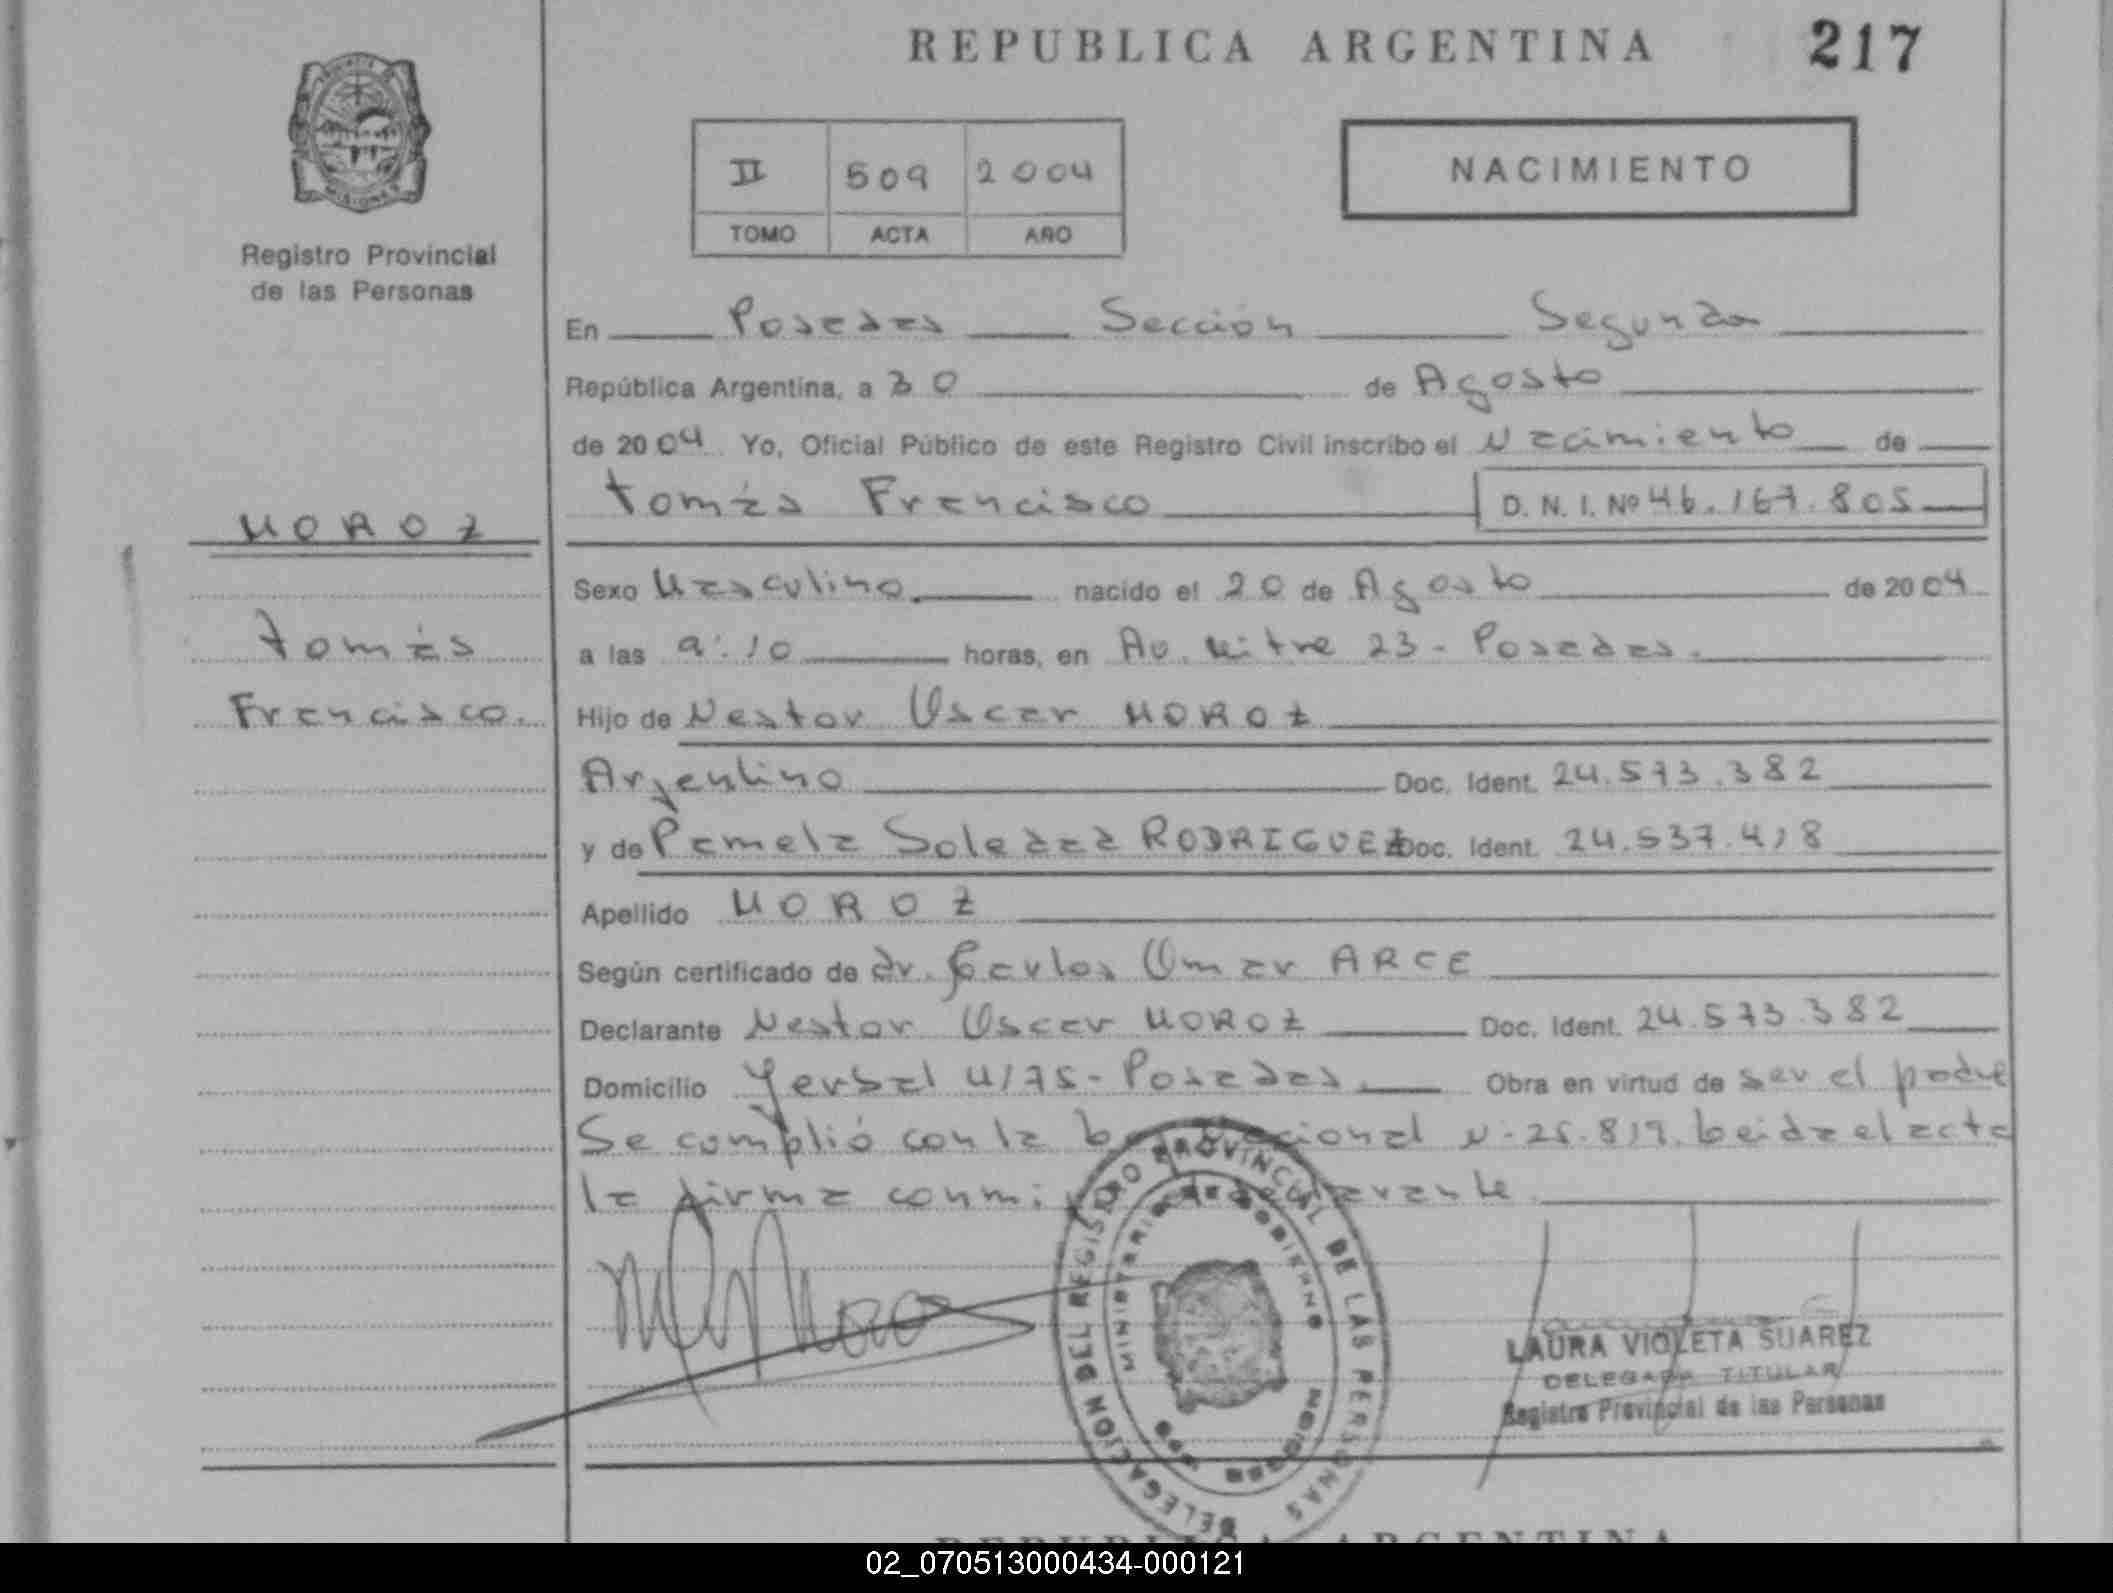 REPUBLICA ARGENTINA 217
II 509 2004
TOMO ACTA AÑO
NACIMIENTO
MISIONES
Registro Provincial
de las Personas
En Posadas Sección Segunda
República Argentina, a 30 de Agosto
de 2004 Yo, Oficial Público de este Registro Civil inscribo el Nacimiento de
Tomás Francisco D. N. I. Nº 46.167.805
MOROZ
Tomás
Francisco.
Sexo Masculino nacido el 20 de Agosto de 2004
a las 9:10 horas, en Av. Mitre 23 - Posadas.
Hijo de Nestor Oscar MOROZ
Argentino Doc. Ident. 24.573.382
y de Pamela Soledad RODRIGUEZ Doc. Ident. 24.537.418
Apellido MOROZ
Según certificado de dr. Carlos Omar ARCE
Declarante Nestor Oscar MOROZ Doc. Ident. 24.573.382
Domicilio Yerbal 4175 - Posadas. Obra en virtud de ser el padre
Se cumplió con la Nacional N: 25.819. Leida el acta
la firma conmi declarante
DELEGACION DEL REGISTRO PROVINCIAL DE LAS PERSONAS
MINISTERIO DE GOBIERNO
MISIONES
LAURA VIOLETA SUAREZ
DELEGADA TITULAR
Registro Provincial de las Personas
REPUBLICA ARGENTINA
02_070513000434-000121